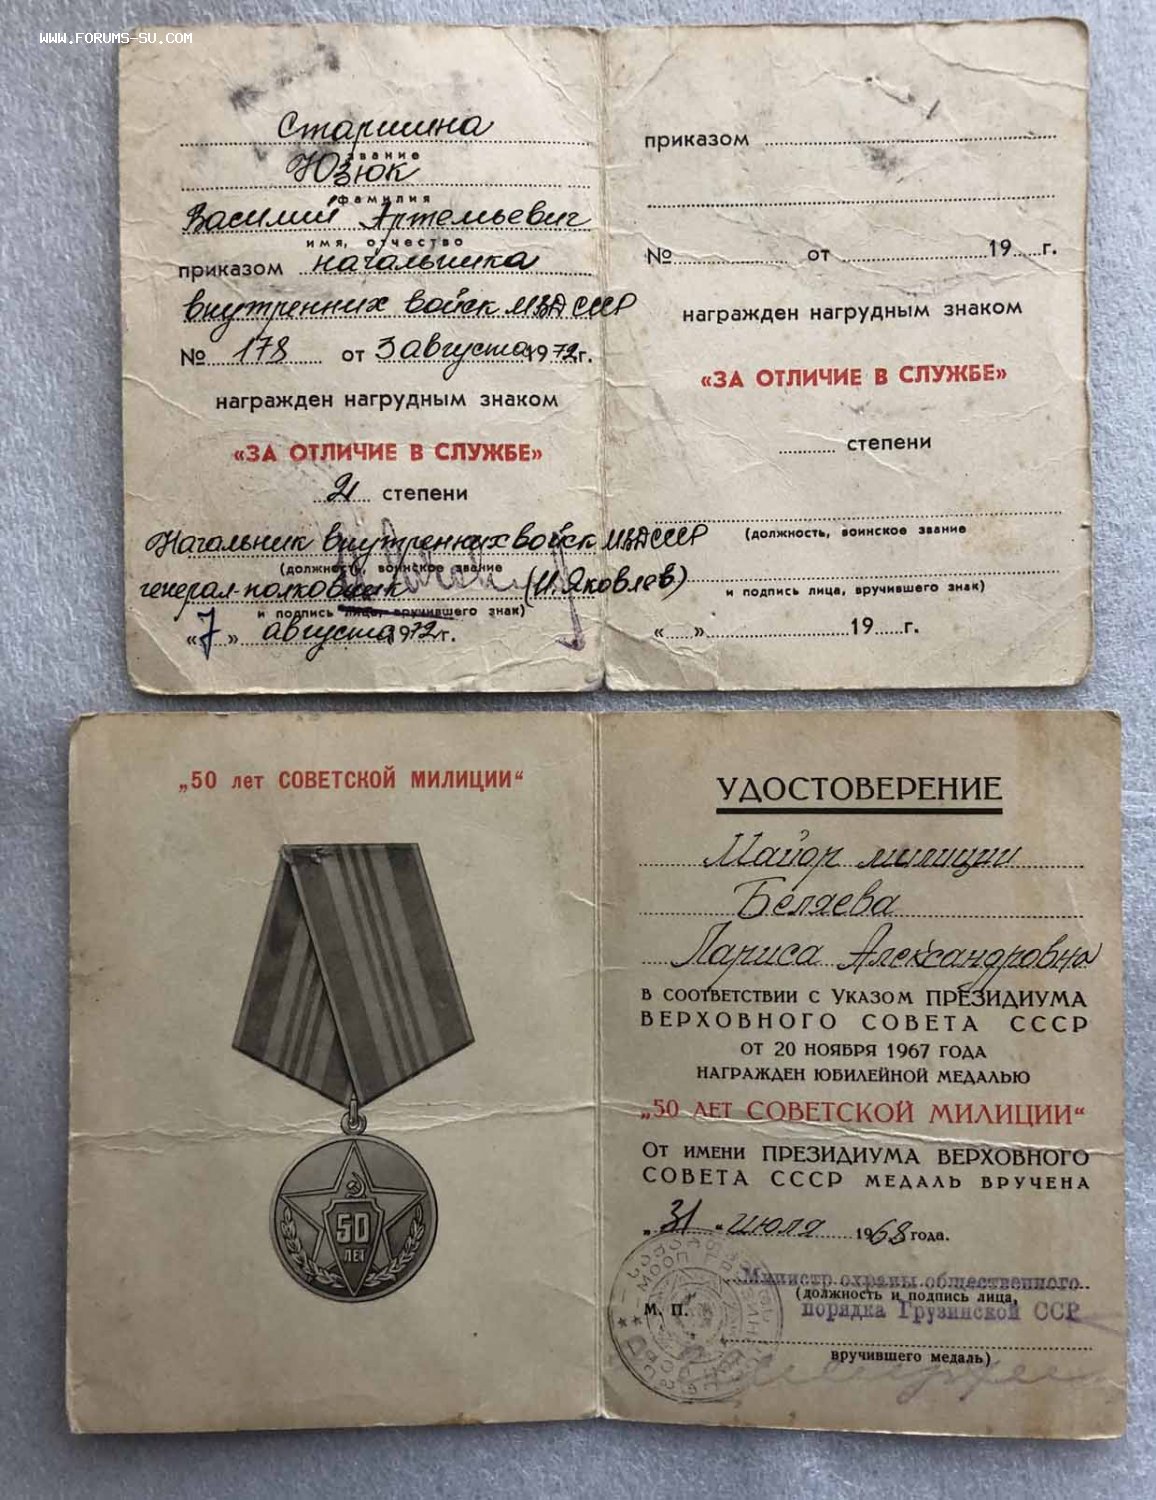 WWW.FORUMS-SU.COM
Старшина
звание
Юзюк
фамилия
Василий Артемьевич
имя, отчество
приказом начальника
внутренних войск МВД СССР
№ 178 от 3 августа 1972 г.
награжден нагрудным знаком
«ЗА ОТЛИЧИЕ В СЛУЖБЕ»
степени
Начальник внутренних войск МВД СССР
(должность, воинское звание
генерал-полковник (И. Яковлев)
и подпись лица, вручившего знак)
«7» августа 1972 г.
приказом
№ от 19 г.
награжден нагрудным знаком
«ЗА ОТЛИЧИЕ В СЛУЖБЕ»
степени
(должность, воинское звание
и подпись лица, вручившего знак)
« » 19 г.
„50 лет СОВЕТСКОЙ МИЛИЦИИ“
50
ЛЕТ
УДОСТОВЕРЕНИЕ
Майор милиции
Беляева
Лариса Александровна
В СООТВЕТСТВИИ С УКАЗОМ ПРЕЗИДИУМА
ВЕРХОВНОГО СОВЕТА СССР
ОТ 20 НОЯБРЯ 1967 ГОДА
НАГРАЖДЕН ЮБИЛЕЙНОЙ МЕДАЛЬЮ
„50 ЛЕТ СОВЕТСКОЙ МИЛИЦИИ“
ОТ ИМЕНИ ПРЕЗИДИУМА ВЕРХОВНОГО
СОВЕТА СССР МЕДАЛЬ ВРУЧЕНА
„31“ июля 1968 года.
Министр охраны общественного
(должность и подпись лица,
М. П. порядка Грузинской ССР
вручившего медаль)